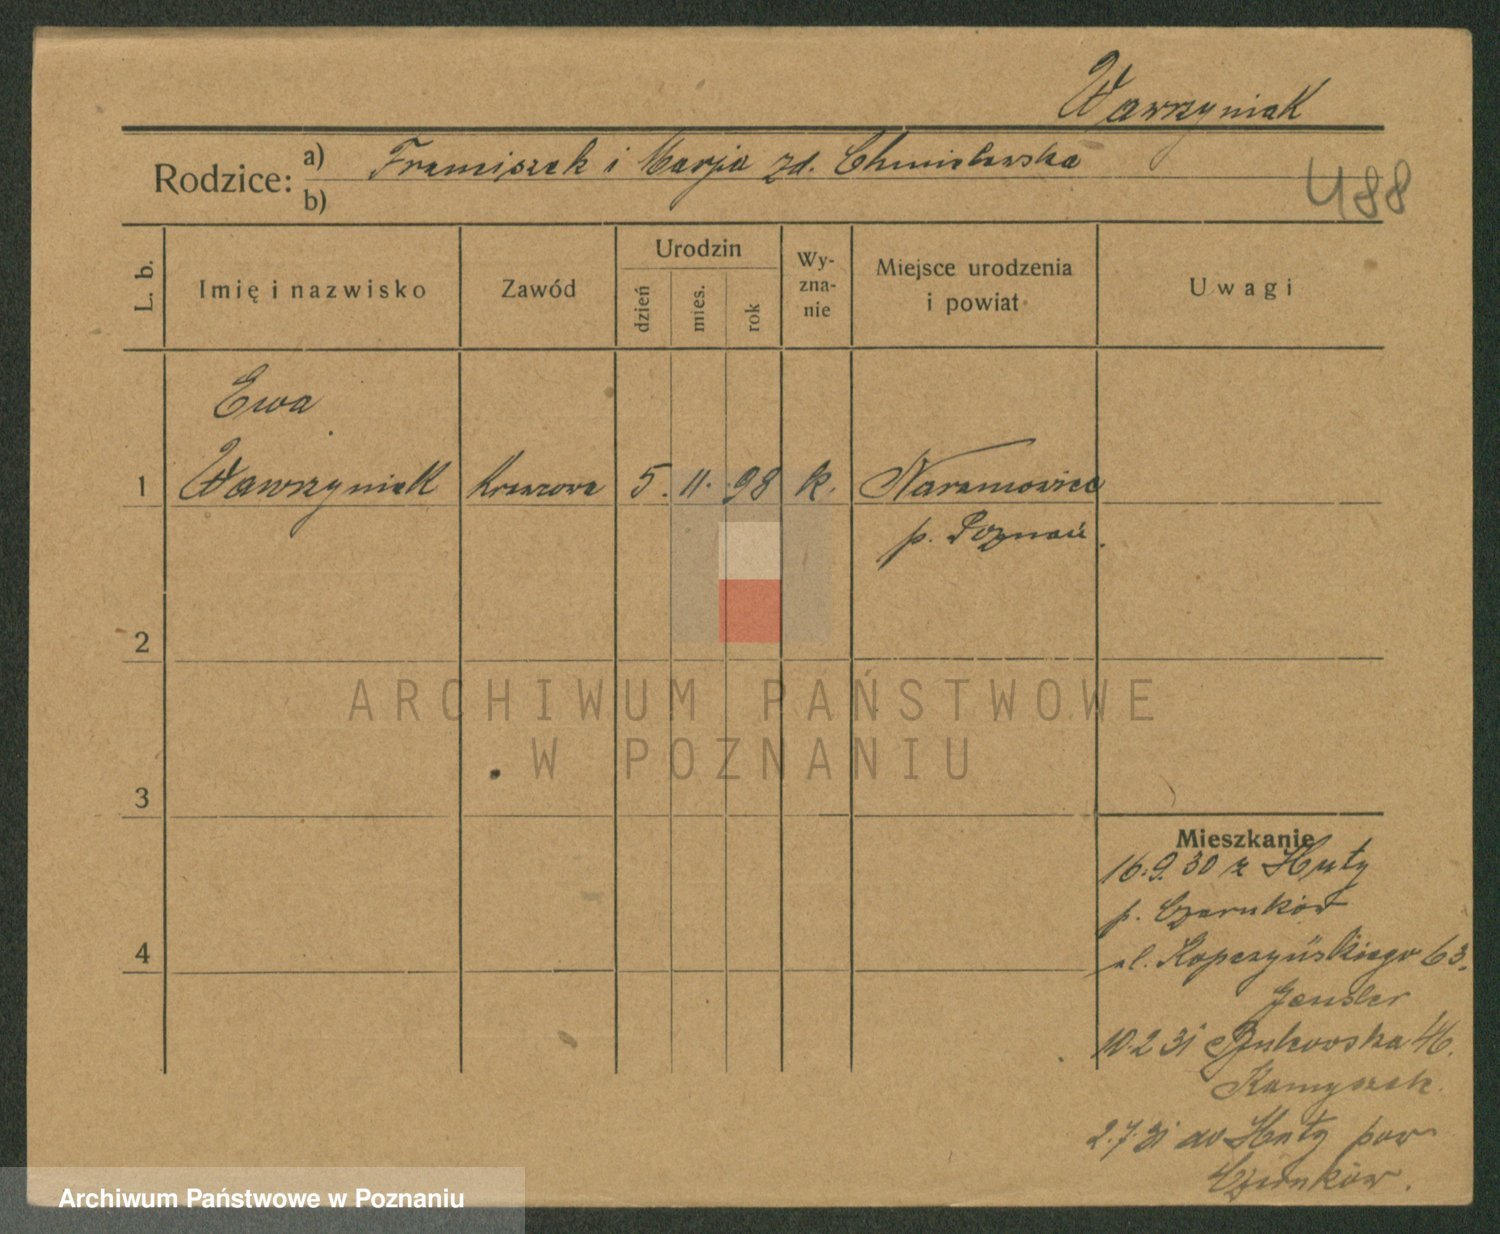 Wawrzyniak
Rodzice:
a) Franciszek i Marja zd. Chmielewska
b)
488
L. b.
Imię i nazwisko
Zawód
Urodzin
dzień
mies.
rok
Wy-
zna-
nie
Miejsce urodzenia
i powiat
Uwagi
Ewa
1 Wawrzyniak Krawcowa 5. 11. 98 k. Naramowice
p. Poznań.
2
3
4
ARCHIWUM PAŃSTWOWE
W POZNANIU
Mieszkanie
16.9.30 z Huty
p. Czarnków
ul. Kopczyńskiego 63.
10.2 31 Bukowska 46.
Kamyszek.
2.7.31 do Huty pow
Czarnków.
Archiwum Państwowe w Poznaniu